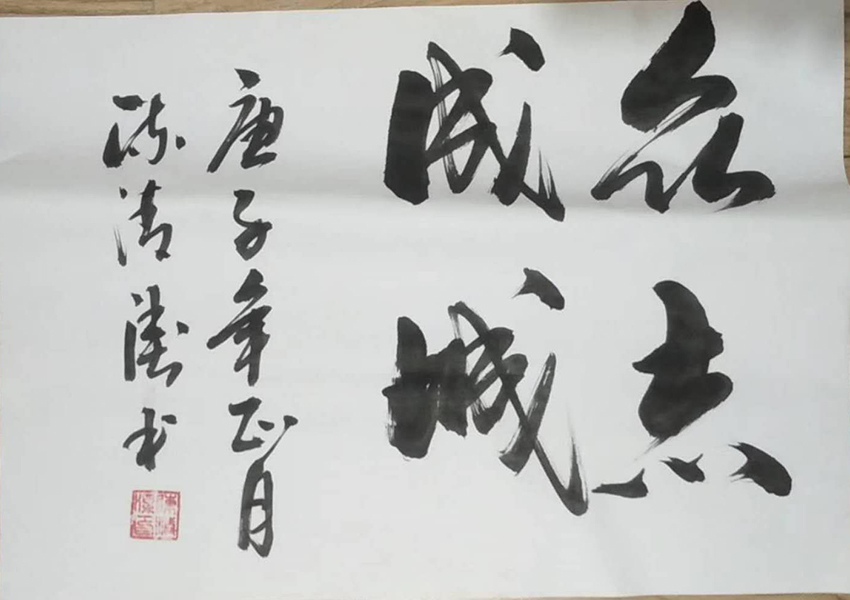 众志
成城
庚子年正月
陈清华书